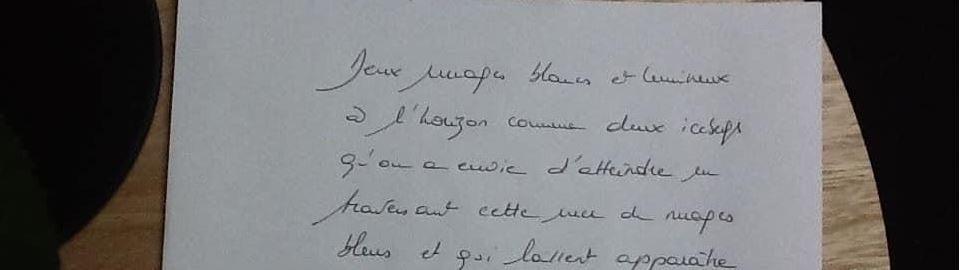 Deux nuages blancs et lumineux
à l'horizon comme deux icebergs
qu'on a envie d'atteindre en
traversant cette mer de nuages
bleus et qui laissent apparaître